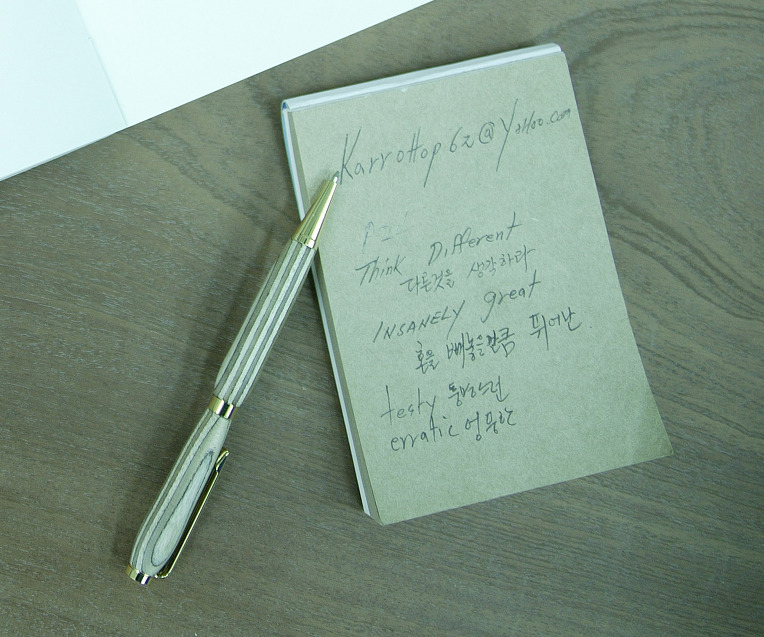 Karrottop62@Yahoo.com
Think Different
다른것을 생각하라
INSANELY great
혼을 빼놓을만큼 뛰어난
testy
erratic 엉뚱한